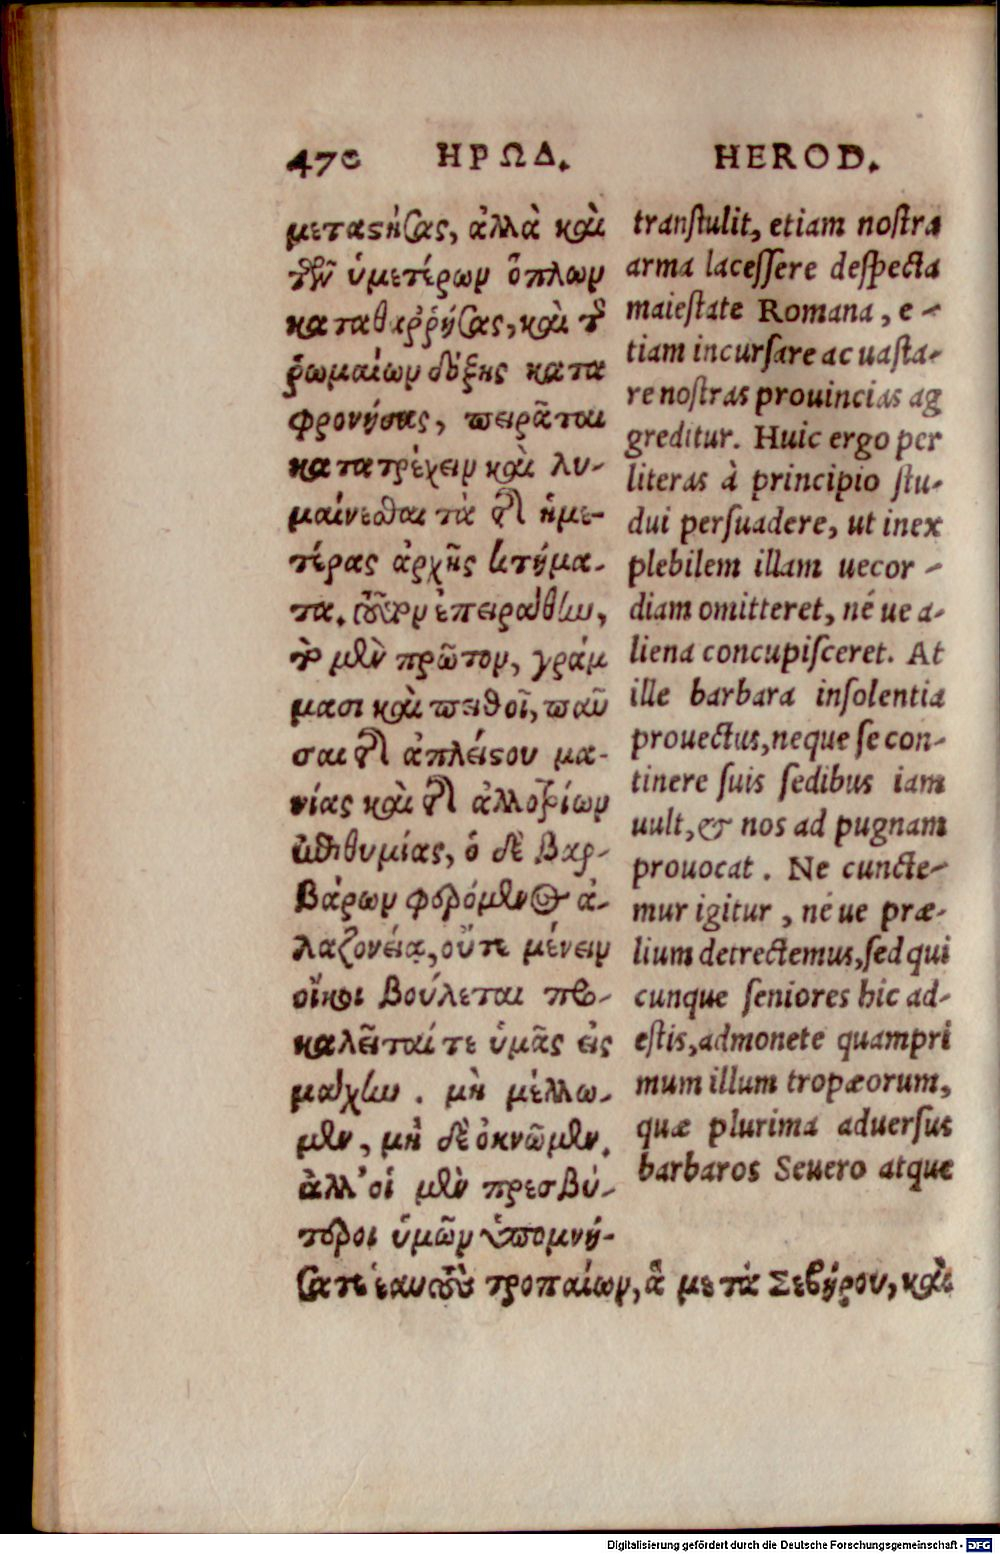 470 ΗΡΩΔ. HEROD.
μεταστήσας, ἀλλὰ καὶ
τῶν ὑμετέρων ὅπλων
καταθαῤῥήσας, καὶ τῆς
ῥωμαίων δόξης κατα
φρονήσας, πειρᾶται
κατατρέχειν καὶ λυ-
μαίνεσθαι τὰ τῆς ἡμε-
τέρας ἀρχῆς κτήμα-
τα. τοῦτον ἐπειράθην,
τὸ μὲν πρῶτον, γράμ
μασι καὶ πειθοῖ, παῦ
σαι τῆς ἀπλείστου μα-
νίας καὶ τῆς ἀλλοτρίων
ἐπιθυμίας, ὁ δὲ βαρ-
βάρων φερόμενος ἀ-
λαζονείᾳ, οὔτε μένειν
οἴκοι βούλεται προ-
καλεῖταί τε ὑμᾶς εἰς
μάχην. μὴ μέλλω-
μεν, μὴ δὲ ὀκνῶμεν.
ἀλλ' οἱ μὲν πρεσβύ-
τεροι ὑμῶν ὑπομνή-
σατε ἑαυτοὺς τροπαίων, ἃ μετὰ Σεβήρου, καὶ
tranſtulit, etiam noſtra
arma laceſſere deſpecta
maieſtate Romana, e-
tiam incurſare ac uaſta-
re noſtras prouincias ag
greditur. Huic ergo per
literas à principio ſtu-
dui perſuadere, ut inex
plebilem illam uecor-
diam omitteret, né ue a-
liena concupiſceret. At
ille barbara inſolentia
prouectus, neque ſe con-
tinere ſuis ſedibus iam
uult, & nos ad pugnam
prouocat. Ne cuncte-
mur igitur, né ue præ-
lium detrectemus, ſed qui
cunque ſeniores hic ad-
eſtis, admonete quampri
mum illum tropæorum,
quæ plurima aduerſus
barbaros Seuero atque
Digitalisierung gefördert durch die Deutsche Forschungsgemeinschaft - DFG